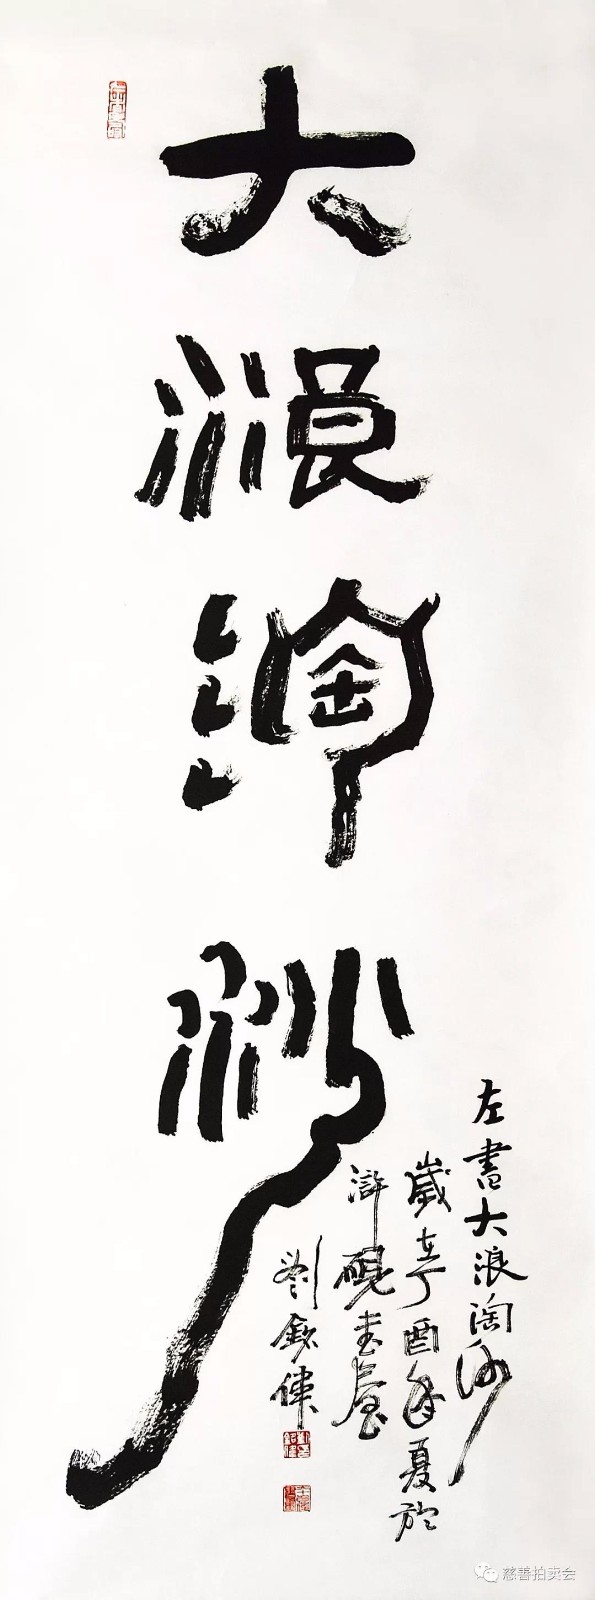 大浪淘沙
左書大浪淘沙
歲在丁酉年夏於
滸硯書屋
劉偉
慈善拍卖会